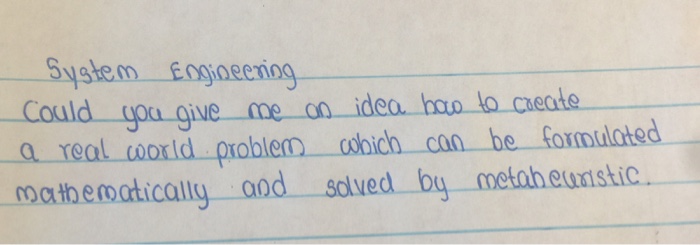 System Engineering
Could you give me an idea how to create
a real world problem which can be formulated
mathematically and solved by metaheuristic.